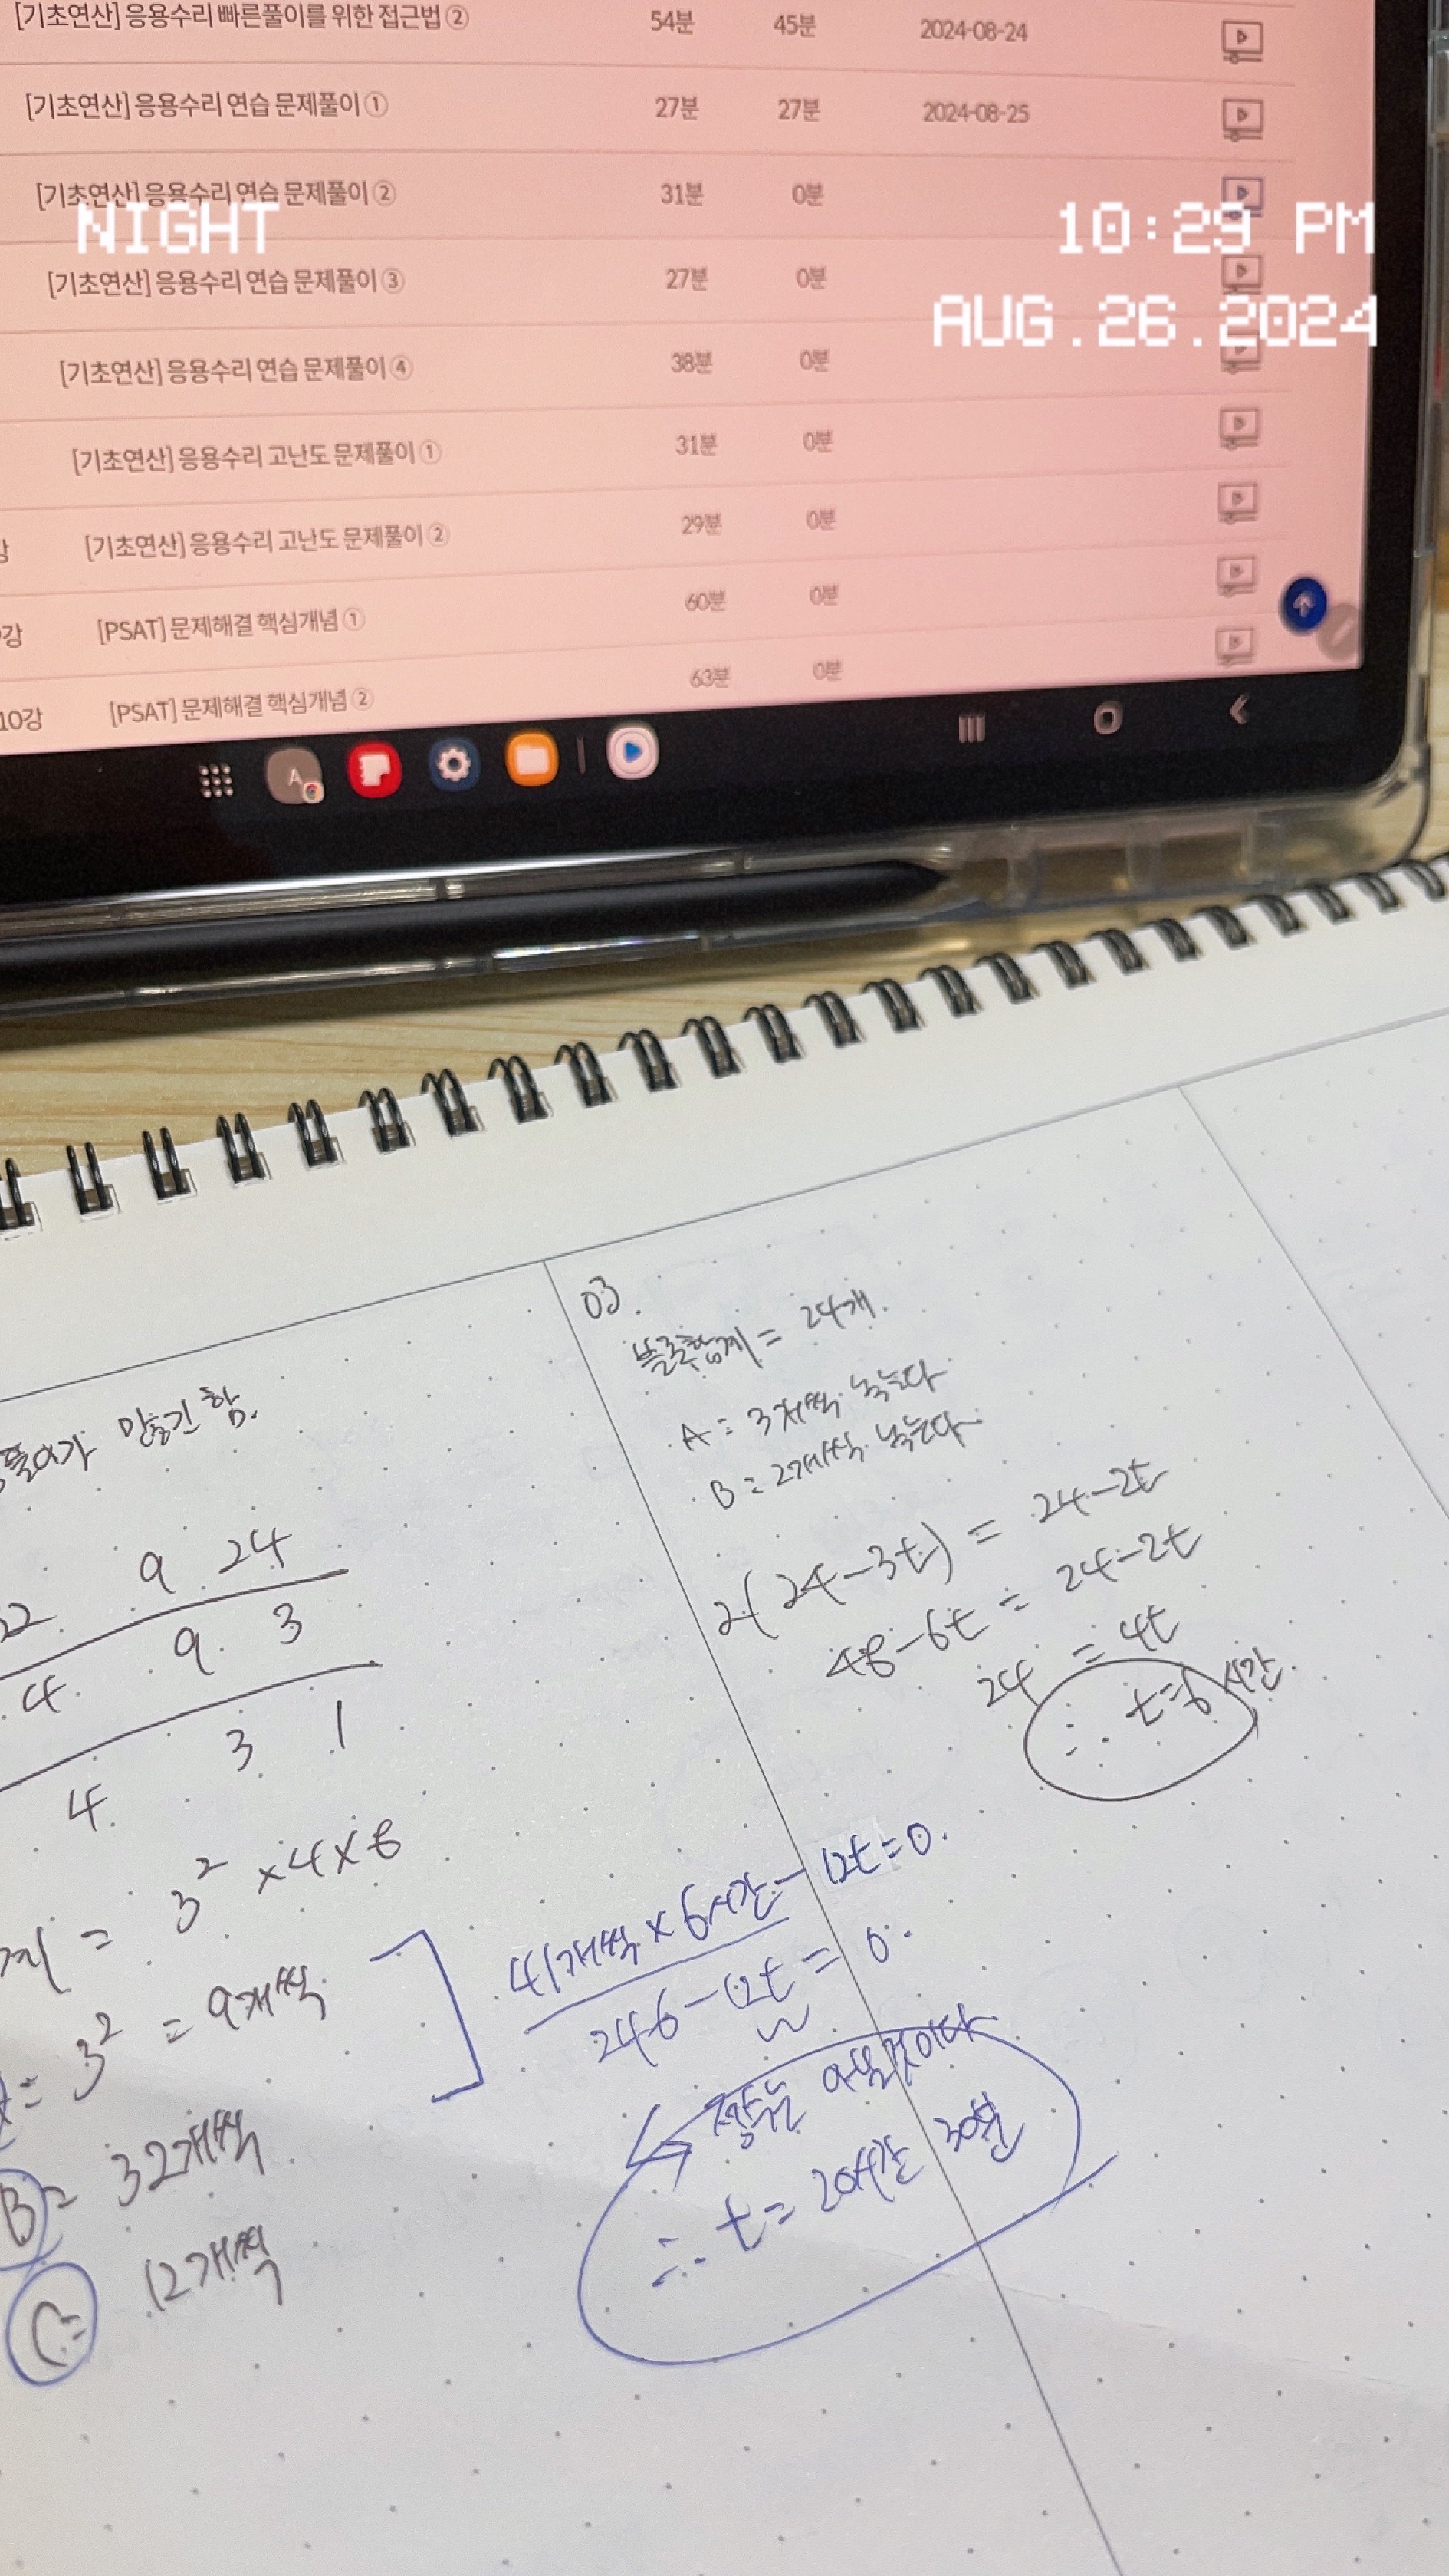 [기초연산] 응용수리 빠른풀이를 위한 접근법 ② 54분 45분 2024-08-24
[기초연산] 응용수리 연습 문제풀이 ① 27분 27분 2024-08-25
[기초연산] 응용수리 연습 문제풀이 ② 31분 0분
NIGHT 10:29 PM
[기초연산] 응용수리 연습 문제풀이 ③ 27분 0분
AUG.26.2024
[기초연산] 응용수리 연습 문제풀이 ④ 38분 0분
[기초연산] 응용수리 고난도 문제풀이 ① 31분 0분
강 [기초연산] 응용수리 고난도 문제풀이 ② 29분 0분
강 [PSAT] 문제해결 핵심개념 ① 60분 0분
10강 [PSAT] 문제해결 핵심개념 ② 63분 0분
03.
블록합계 = 24개.
A = 3개씩 녹는다
B = 2개씩 녹는다
2(24-3t) = 24-2t
48-6t = 24-2t
24 = 4t
∴ t=6시간.
9 24
4. 9. 3
4. 3 1
= 3² ×4×8
= 3² = 9개씩
B = 32개씩
C = 12개씩
41개씩 × 6시간 - 12t=0.
246-12t = 0.
정수는 아닐것이다
∴ t = 20시간 30분